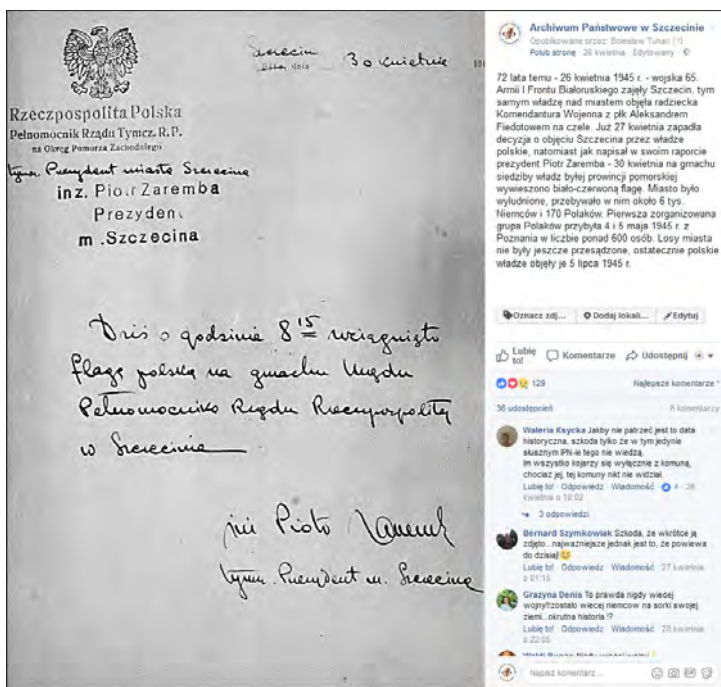 Szczecin 30 kwietnia
dnia
Rzeczpospolita Polska
Pełnomocnik Rządu Tymcz. R.P.
na Okręg Pomorza Zachodniego
tymcz. Prezydent miasta Szczecina
inż. Piotr Zaremba
Prezyden
m .Szczecina
Dziś o godzinie 8 15 wciągnięto
flagę polską na gmachu Urzędu
Pełnomocnika Rządu Rzeczypospolitej
w Szczecinie
inż Piotr Zaremba
tymcz. Prezydent m. Szczecina
Archiwum Państwowe w Szczecinie
Opublikowane przez: Bolesław Tuhan
Polub stronę · 26 kwietnia · Edytowany ·
72 lata temu - 26 kwietnia 1945 r. - wojska 65.
Armii I Frontu Białoruskiego zajęły Szczecin, tym
samym władzę nad miastem objęła radziecka
Komendantura Wojenna z płk Aleksandrem
Fiedotowem na czele. Już 27 kwietnia zapadła
decyzja o objęciu Szczecina przez władze
polskie, natomiast jak napisał w swoim raporcie
prezydent Piotr Zaremba - 30 kwietnia na gmachu
siedziby władz byłej prowincji pomorskiej
wywieszono biało-czerwoną flagę. Miasto było
wyludnione, przebywało w nim około 6 tys.
Niemców i 170 Polaków. Pierwsza zorganizowana
grupa Polaków przybyła 4 i 5 maja 1945 r. z
Poznania w liczbie ponad 600 osób. Losy miasta
nie były jeszcze przesądzone, ostatecznie polskie
władze objęły je 5 lipca 1945 r.
Oznacz zdj... Dodaj lokali... Edytuj
Lubię to! Komentarze Udostępnij
129 Najlepsze komentarze
36 udostępnień 8 komentarzy
Waleria Ksycka Jakby nie patrzeć jest to data
historyczna, szkoda tylko że w tym jedynie
słusznym IPN-ie tego nie wiedzą.
Im wszystko kojarzy się wyłącznie z komuną,
chociaż jej, tej komuny nikt nie widział.
Lubię to! · Odpowiedz · Wiadomość · 4 · 26
kwietnia o 10:02
3 odpowiedzi
Bernard Szymkowiak Szkoda, że wkrótce ją
zdjęto...najważniejsze jednak jest to, że powiewa
do dzisiaj!
Lubię to! · Odpowiedz · Wiadomość · 27 kwietnia
o 01:15
Grazyna Denis To prawda nigdy wiecej
wojny!!zostało wiecej niemcow na sorki swojej
ziemi..okrutna historia !?
Lubię to! · Odpowiedz · Wiadomość · 26 kwietnia
o 22:05
Napisz komentarz...